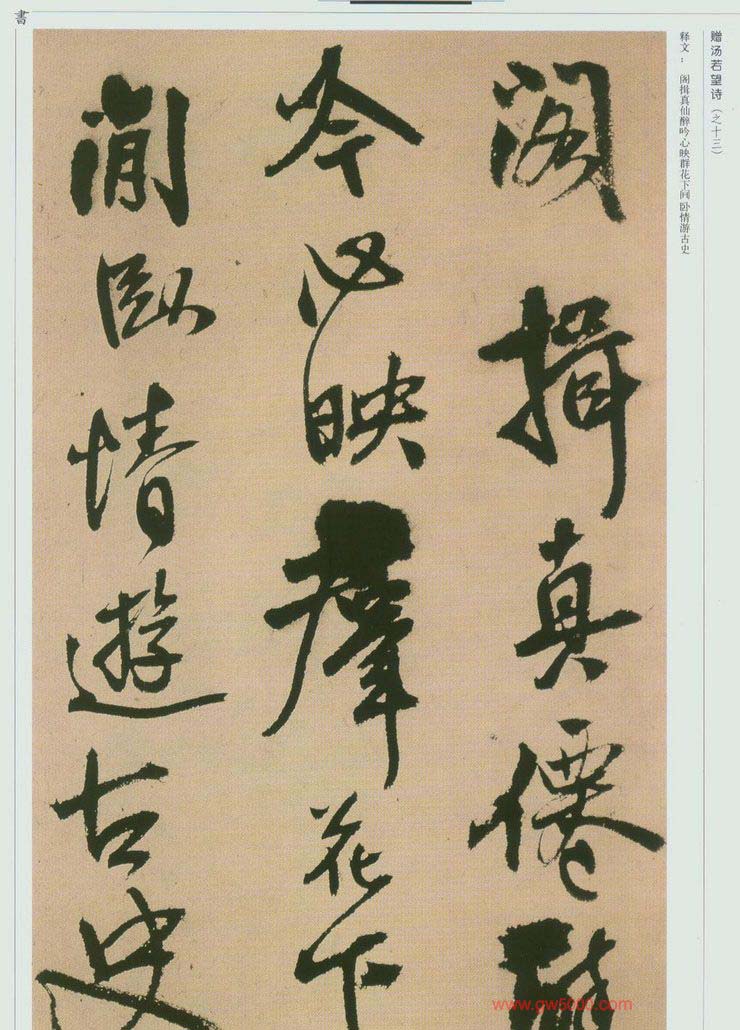 書
赠汤若望诗（之十三）
释文： 阁揖真仙醉吟心映群花下间卧情游古史
阁揖真僊醉
吟心映羣花下
閒卧情遊古史
www.gw5000.com